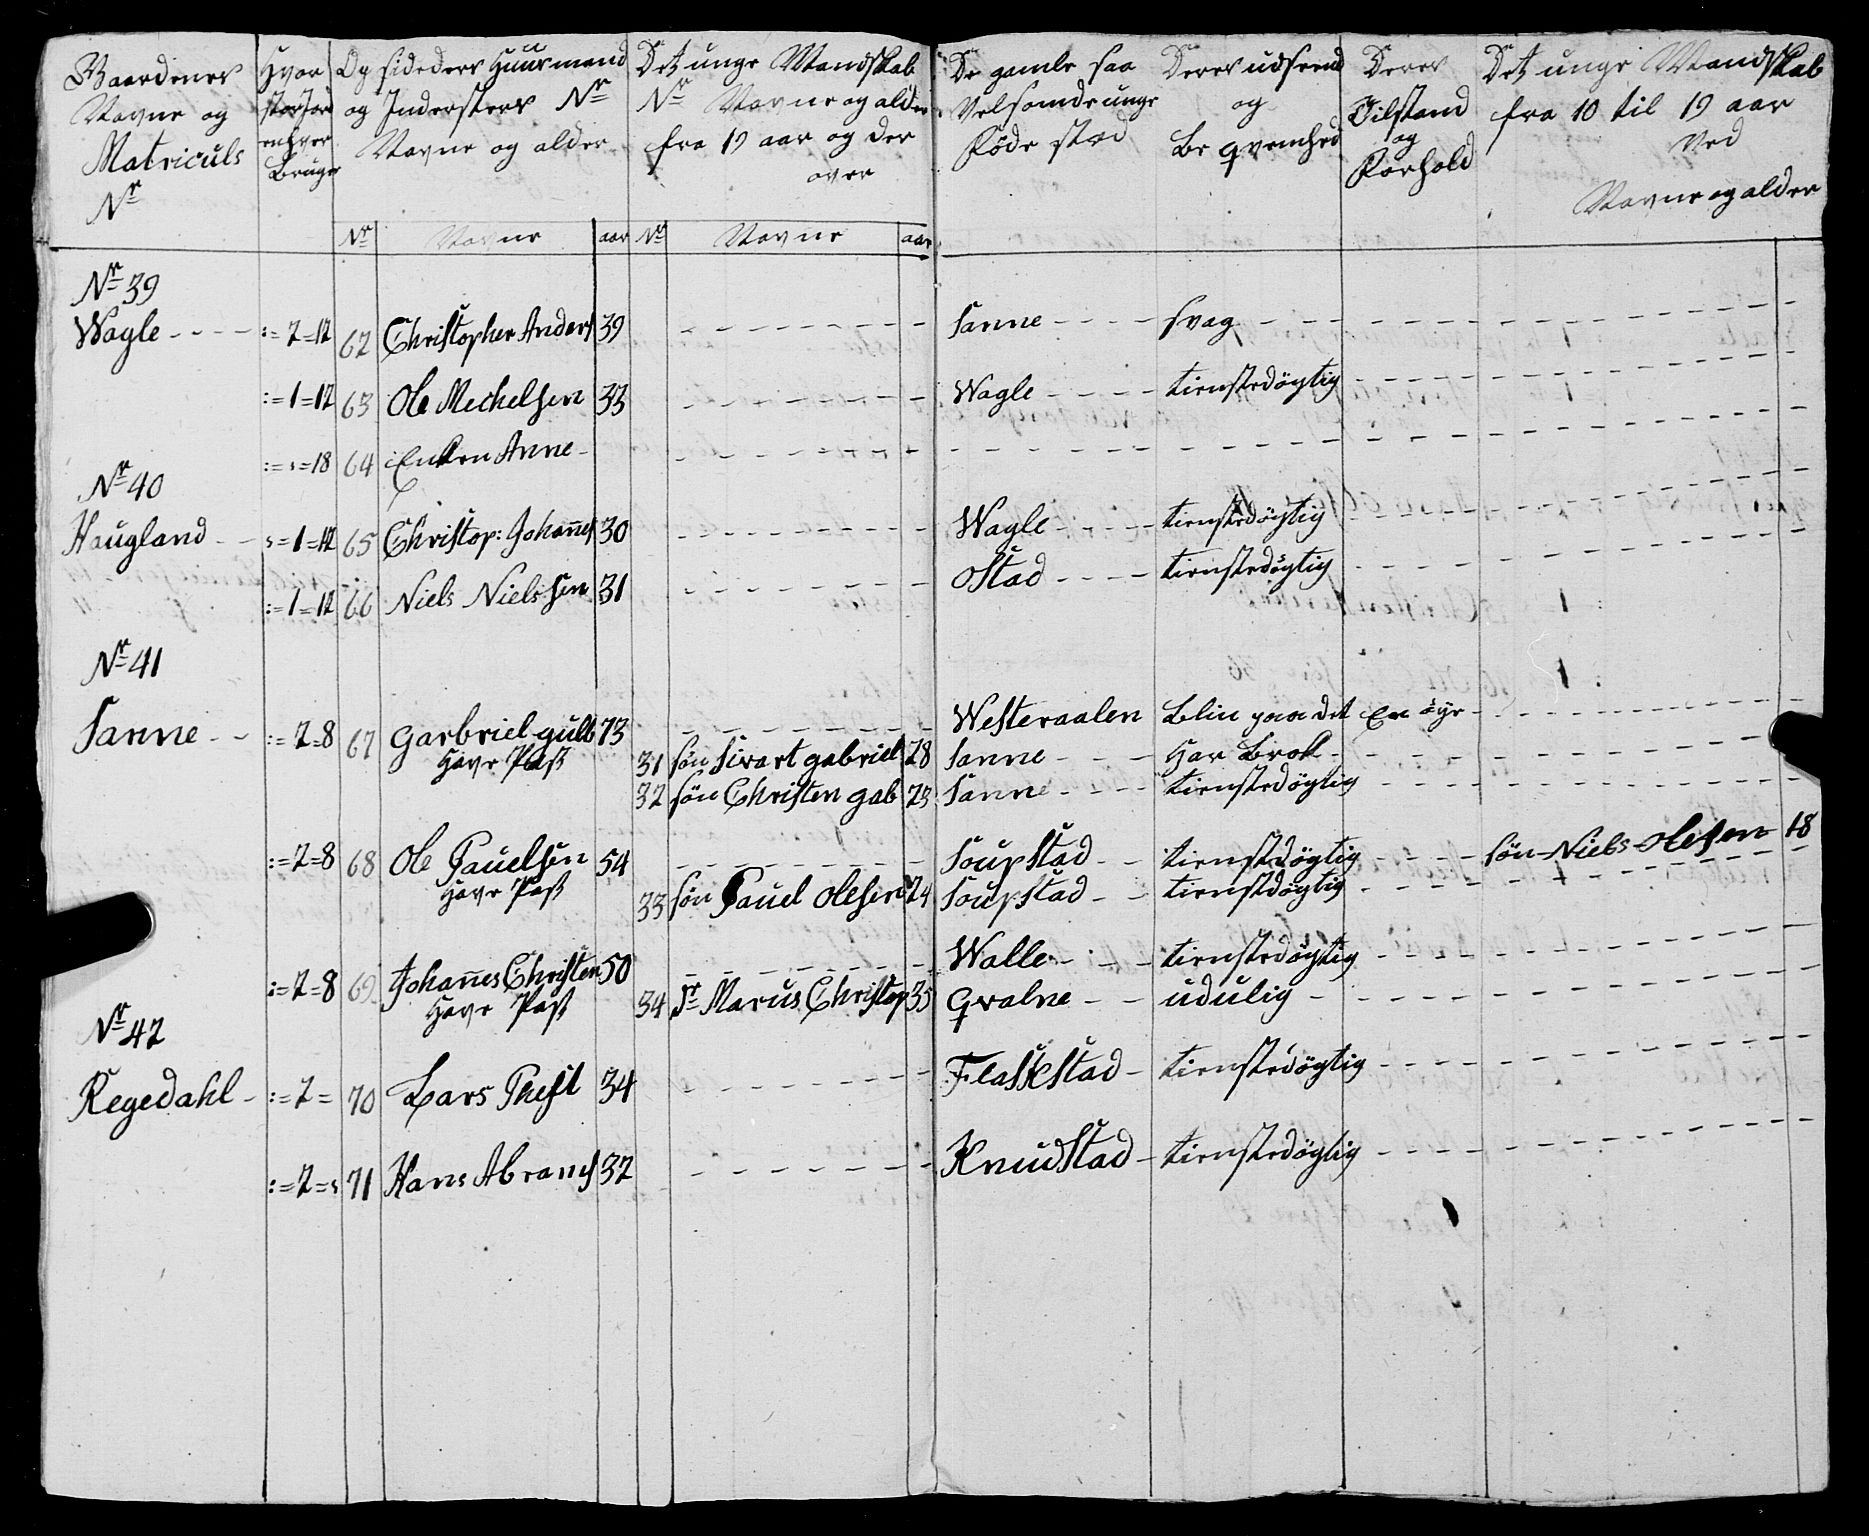 Gaardenes Navne og Matriculs Nr
Hvor stor Jord enhver Bruger
Opsideders Huusmend og Indersters Nr Navne og alder
Det unge Mandskab Nr Navne og alder fra 19 aar og der over
De gamle saa Velsom de unge Føde stæd
Deres udseend og Be qvemhed
Deres Tilstand og Forhold
Det unge Mandskab fra 10 til 19 aar Ved Navne og alder
Nr Navne aar Nr Navne aar
Nr 39
Wagle - - - - := 2 = 12 62 Christopher Anders 39 - - - - Sanne - - - - svag - - - -
:= 1 = 12 63 Ole Mechelsen 33 - - - - Wagle - - - - tienstedögtig - - - -
:= : = 18 64 Enken Anne - - - - -
Nr 40
Haugland - - : = 1 = 12 65 Christop: Johañes 30 - - - - Wagle - - - - tienstedögtig - - - -
:= 1 = 12 66 Niels Nielssen 31 - - - - Ostad - - - - tienstedögtig - - - -
Nr 41
Sanne - - := 2 = 8 67 Garbriel gulb 73 - - - - Westeraalen blin paa det En öye - - - -
Have Pass 31 søn Sivart gabriel 28 Sanne - - - Har Brok - - - -
32 søn Christen gab 23 Sanne - - - tienstedögtig - - - -
:= 2 = 8 68 Ole Pauelsen 54 - - - - Soupstad - - tienstdögtig - - - - søn Niels Olesen 18
Have Pass 33 søn Pauel Olesen 24 Soupstad - - tienstdögtig - - - -
:= 2 = 8 69 Johañes Christen 50 - - - - Walle - - - tienstedögtig - - - -
Have Pass 34 Marcus Christop 35 Qvalne - - udulig - - - -
Nr 42
Regedahl - := 2 = 70 Lars 34 - - - - Flaskstad - tienstedögtig - - - -
:= 2 = : 71 Hans Abrams 32 - - - - Knudstad - tienstedögtig - - - -